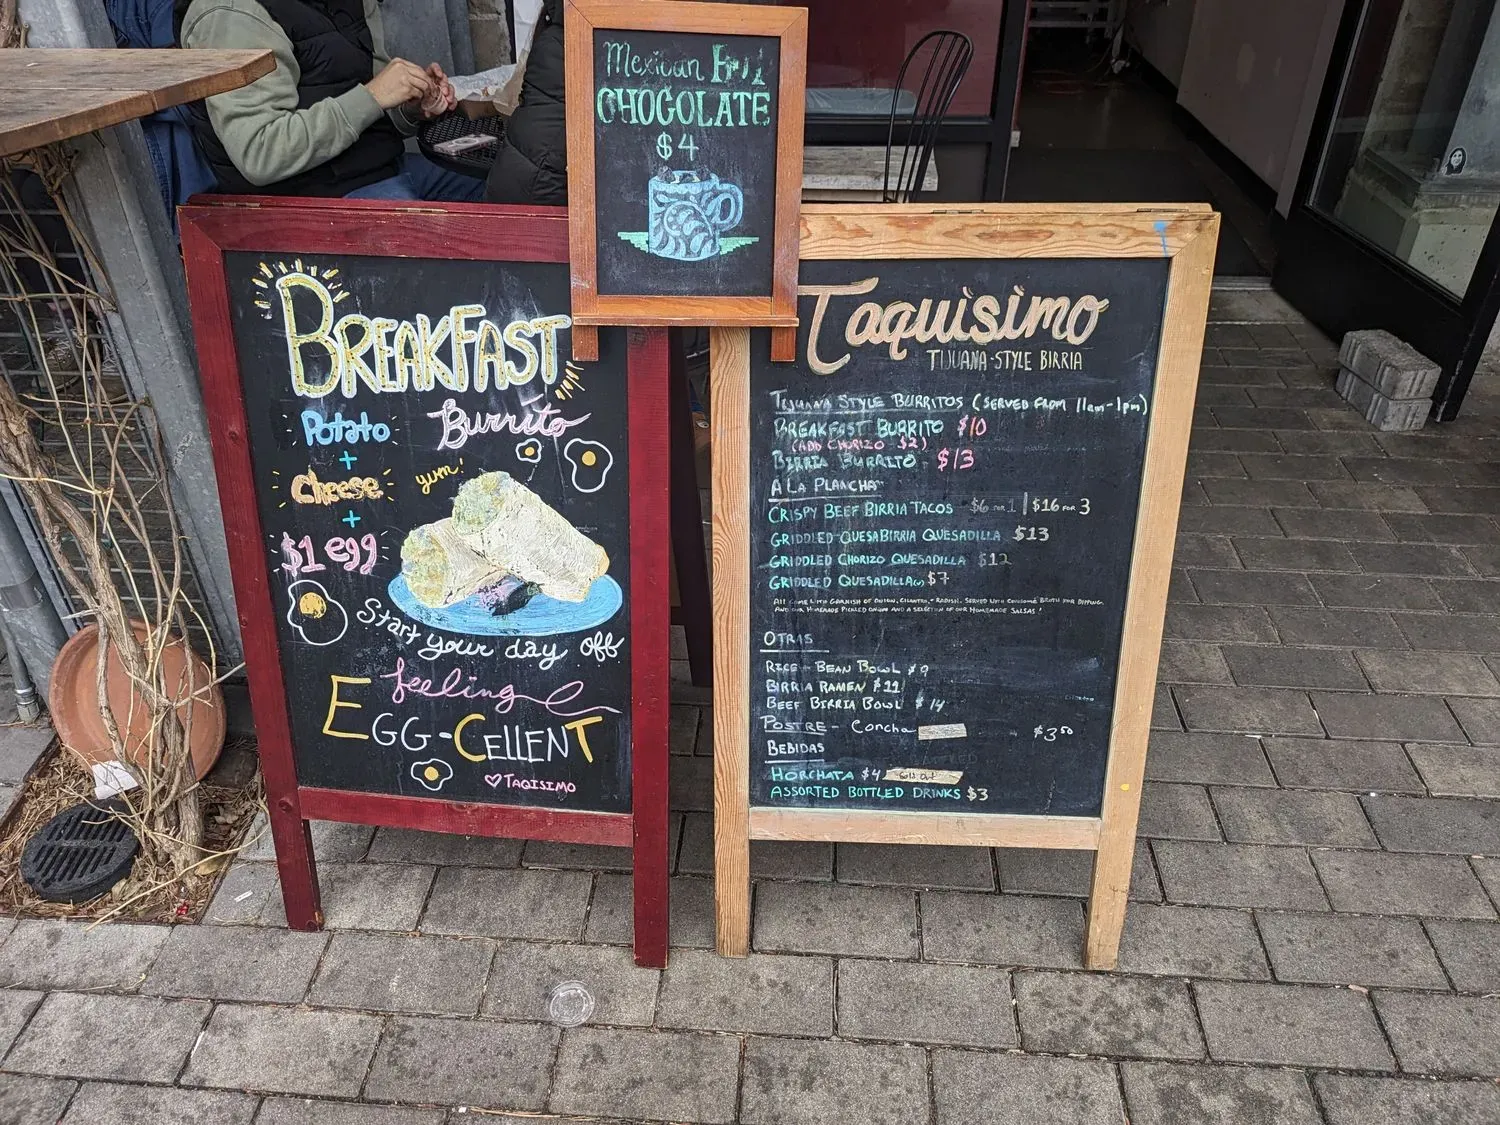 Mexican Hot
CHOCOLATE
$4
BREAKFAST
Burrito
Potato
+
Cheese
+
$1 egg
yum!
Start your day off
feeling
EGG-CELLENT
♡TAQISIMO
Taquisimo
TIJUANA-STYLE BIRRIA
TIJUANA STYLE BURRITOS (SERVED FROM 11am-1pm)
BREAKFAST BURRITO $10
(ADD CHORIZO $2)
BIRRIA BURRITO $13
A LA PLANCHA
CRISPY BEEF BIRRIA TACOS $6 FOR 1 | $16 FOR 3
GRIDDLED QUESABIRRIA QUESADILLA $13
GRIDDLED CHORIZO QUESADILLA $12
GRIDDLED QUESADILLA(v) $7
ALL COME WITH GARNISH OF ONION, CILANTRO, + RADISH. SERVED WITH CONSOMÉ BROTH FOR DIPPING,
AND OUR HOMEMADE PICKLED ONION AND A SELECTION OF OUR HOMEMADE SALSAS!
OTRAS
RICE - BEAN BOWL $9
BIRRIA RAMEN $11
BEEF BIRRIA BOWL $14
POSTRE - Concha $3.50
BEBIDAS
HORCHATA $4 Sold Out
ASSORTED BOTTLED DRINKS $3